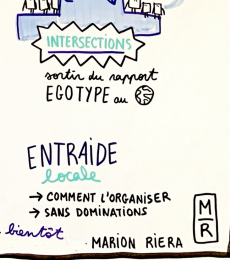 INTERSECTIONS
sortir du rapport
EGOTYPE au
ENTRAIDE
locale
→ COMMENT L'ORGANISER
→ SANS DOMINATIONS
bientôt
MARION RIERA
M
R